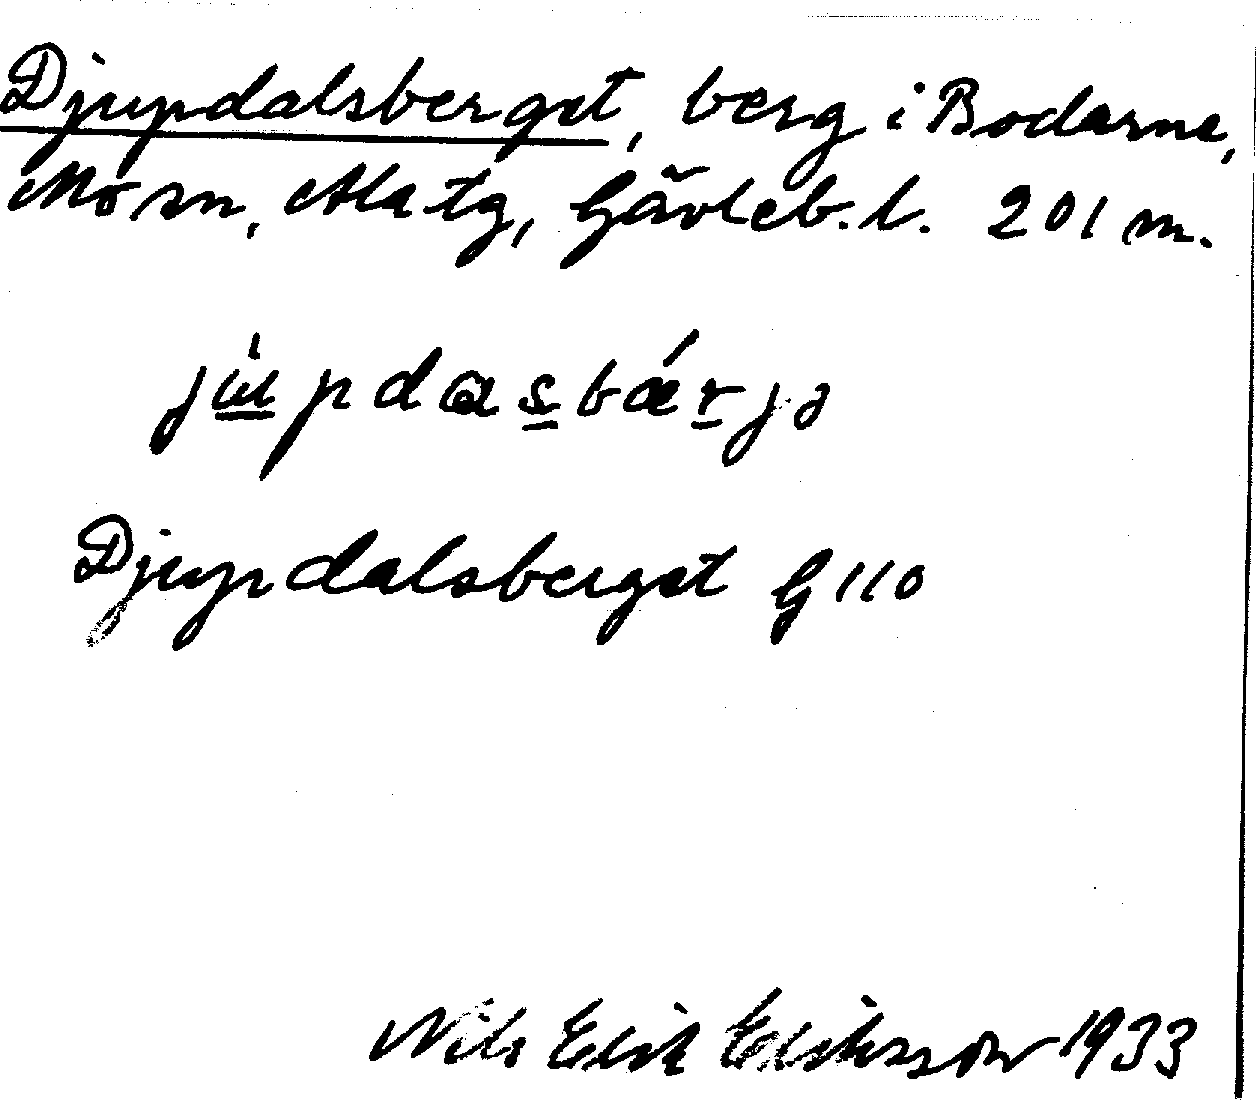 Djupdalsberget, berg i Bodarne,
Mo sn, Ala tg, Gävleb. l. 201 m.
jùpdasbǽrjə
Djupdalsberget G 110
Nils Erik Eriksson 1933